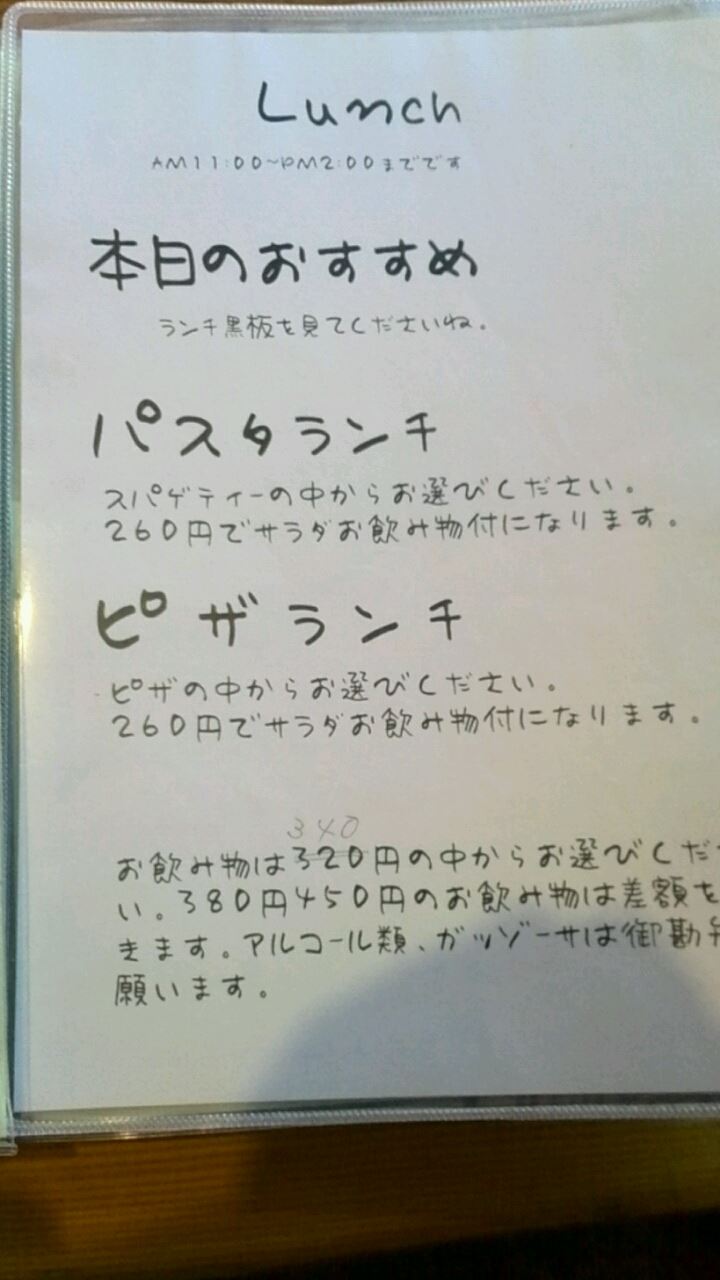 Lunch
AM11:00~PM2:00までです
本日のおすすめ
ランチ黒板を見てくださいね。
パスタランチ
スパゲティーの中からお選びください。
260円でサラダお飲み物付になります。
ピザランチ
ピザの中からお選びください。
260円でサラダお飲み物付になります。
340
お飲み物は320円の中からお選びくだ
い。380円450円のお飲み物は差額を
きます。アルコール類、ガッゾーサは御勘
願います。